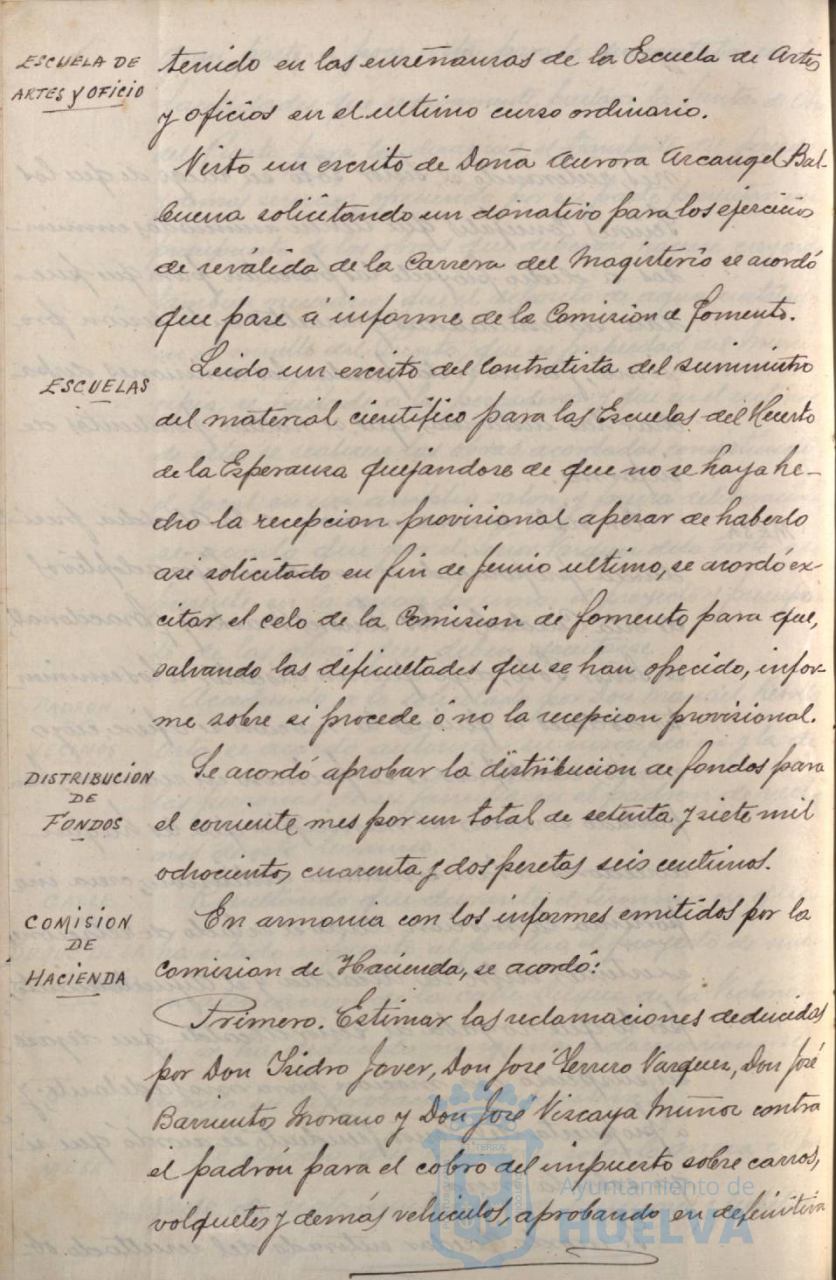 ESCUELA DE
ARTES y OFICIO
tenido en las enseñanzas de la Escuela de Artes
y oficios en el ultimo curso ordinario.
Visto un escrito de Doña Aurora Arcangel Bal-
buena solicitando un donativo para los ejercicios
de reválida de la Carrera del Magisterio se acordó
que pase á informe de la Comision de Fomento.
ESCUELAS
Leido un escrito del Contratista del suministro
del material cientifico para las Escuelas del Huerto
de la Esperanza quejandose de que no se haya he-
cho la recepcion provisional apesar de haberlo
asi solicitado en fin de Junio ultimo, se acordó ex-
citar el celo de la Comision de fomento para que,
salvando las dificultades que se han ofrecido, infor-
me sobre si procede ó no la recepcion provisional.
DISTRIBUCIÓN
DE
FONDOS
Se acordó aprobar la distribucion de fondos para
el corriente mes por un total de setenta y siete mil
ochocientos cuarenta y dos pesetas seis centimos.
COMISION
DE
HACIENDA
En armonia con los informes emitidos por la
Comision de Hacienda, se acordó:
Primero. Estimar las reclamaciones deducidas
por Don Isidro Jover, Don José Vazquez, Don José
Barrientos Morano y Don José Vizcaya Muñoz contra
el padrón para el cobro del impuesto sobre carros,
volquetes y demás vehiculos, aprobando en definitiva
Ayuntamiento de
HUELVA